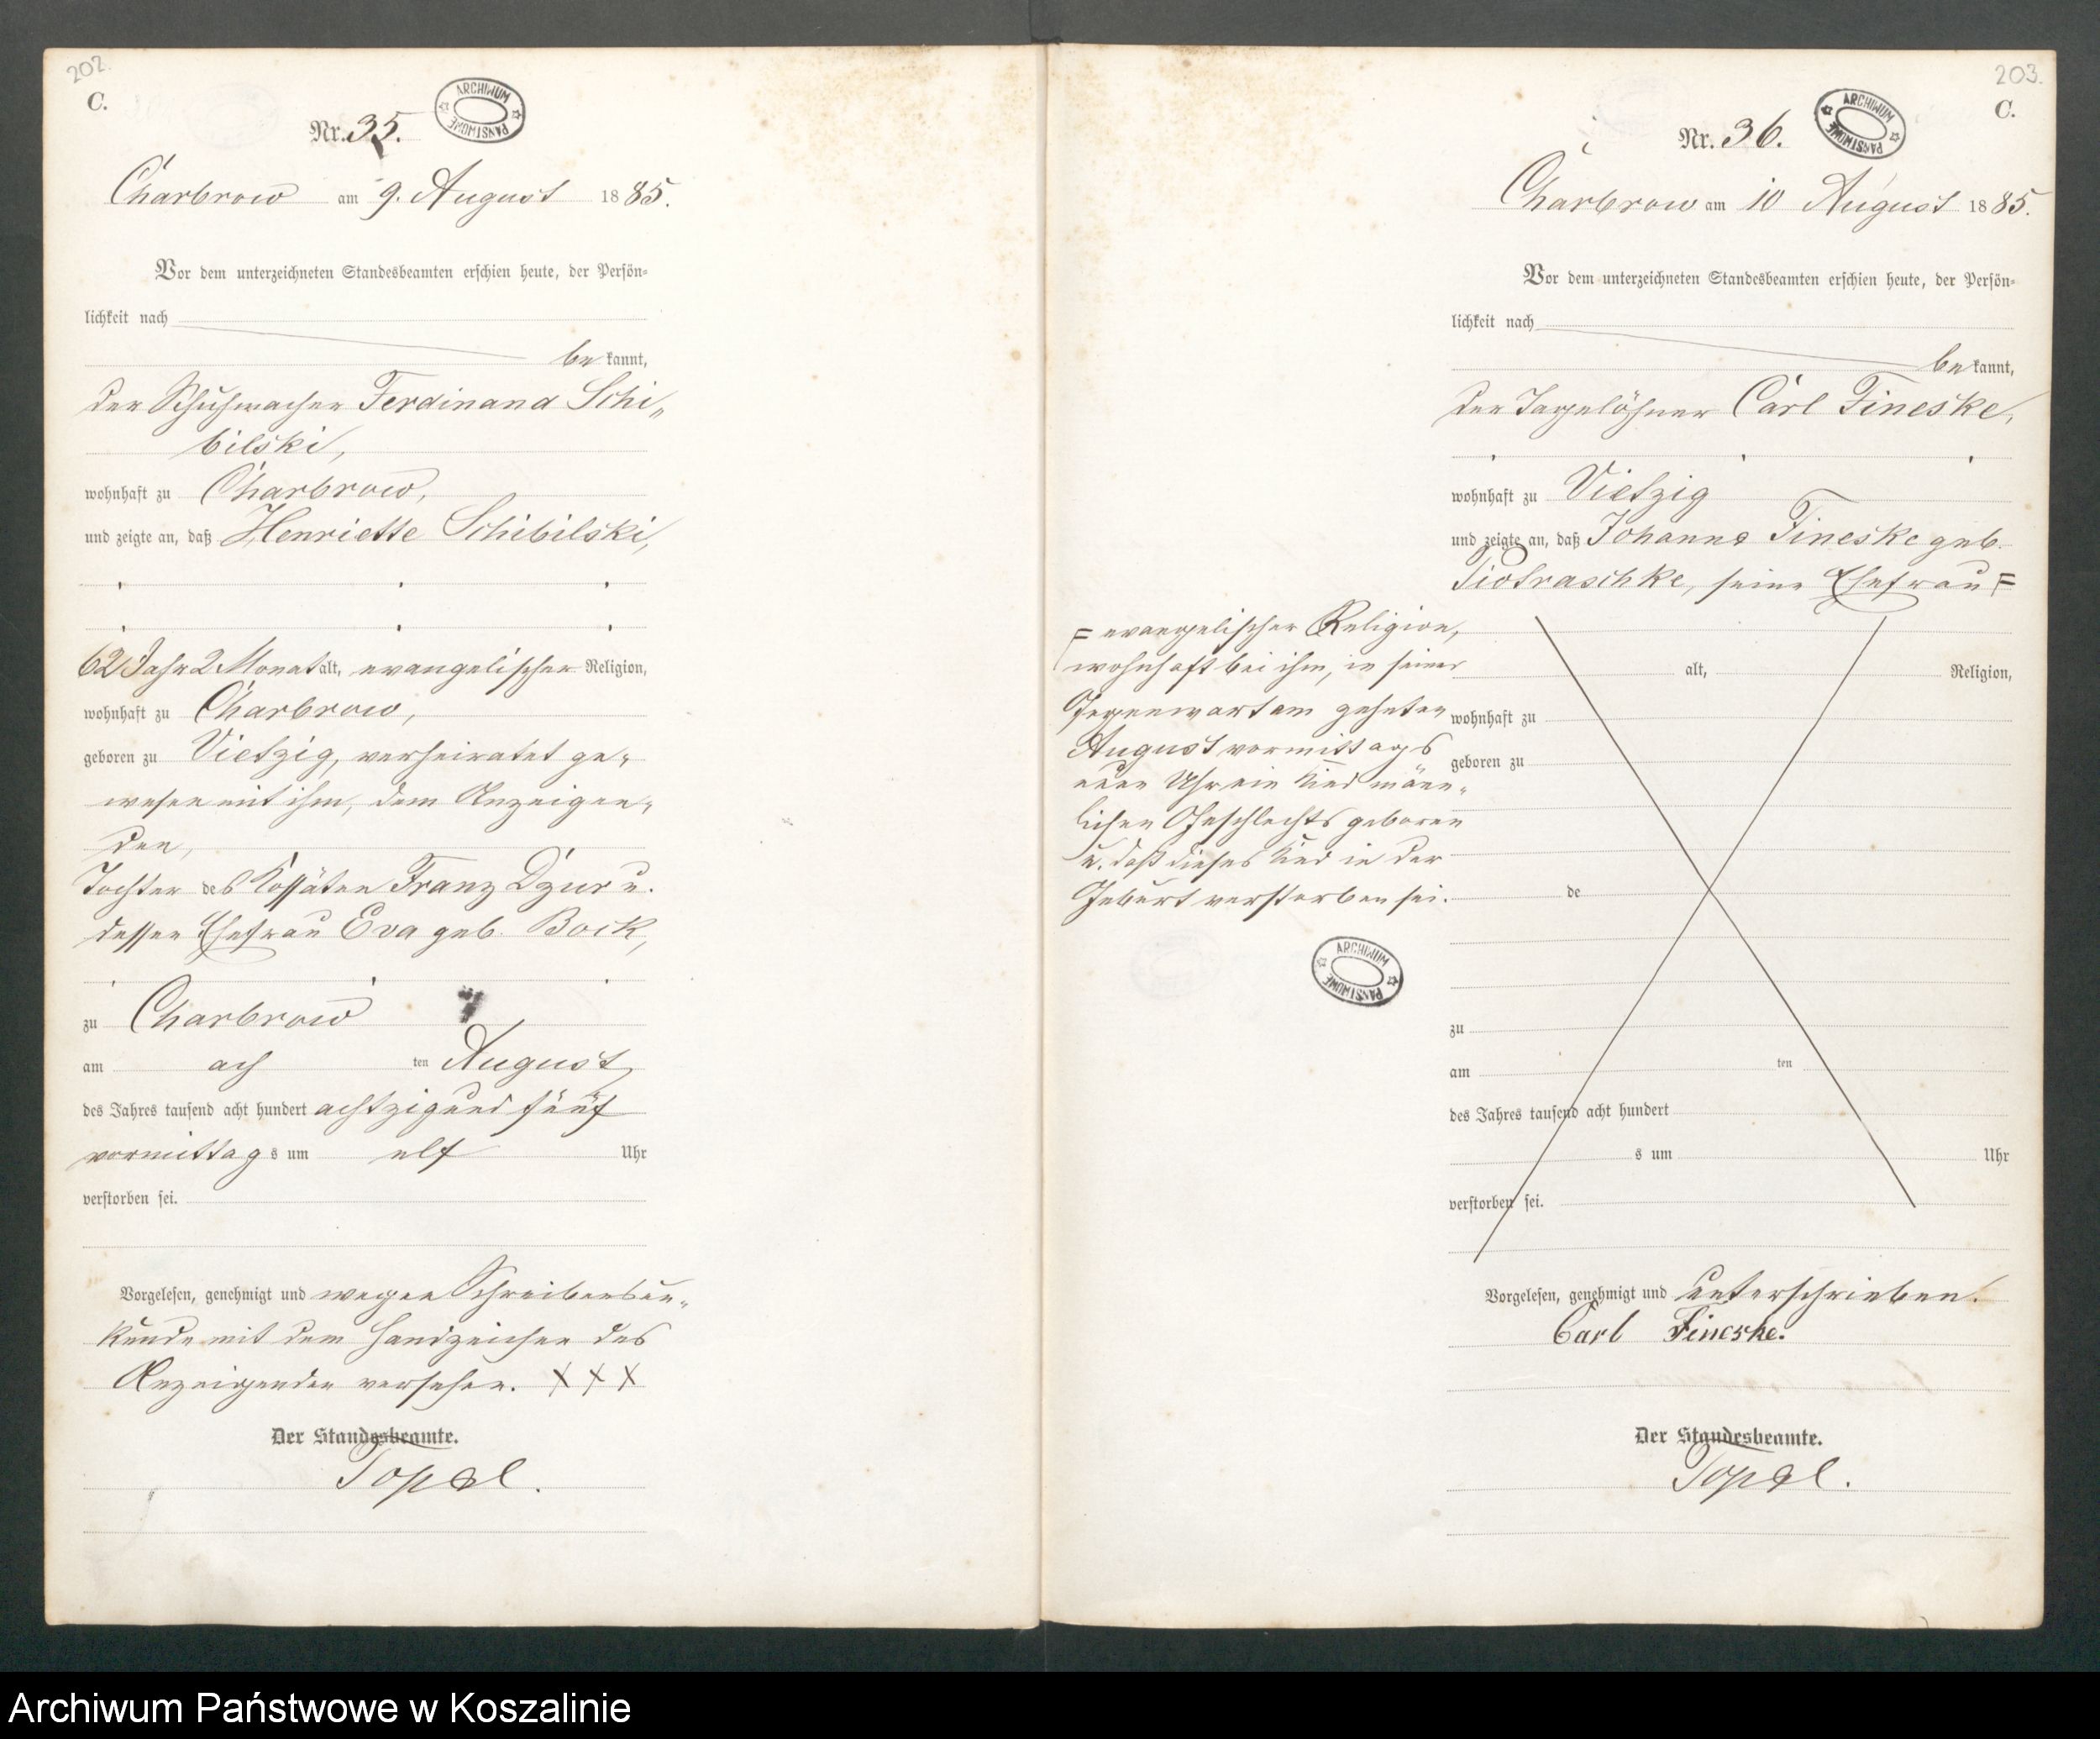 202.
C.
ARCHIWUM PAŃSTWOWE
Nr. 35.
Charbrow am 9. August 1885.
Vor dem unterzeichneten Standesbeamten erschien heute, der Persön-
lichkeit nach
bekannt,
der Schuhmacher Ferdinand Schi-
bilski,
wohnhaft zu Charbrow,
und zeigte an, daß Henriette Schibilski,
62 Jahr 2 Monat alt, evangelischer Religion,
wohnhaft zu Charbrow,
geboren zu Vietzig, verheiratet ge-
wesen mit ihm, dem Anzeigen-
den,
Tochter des Kossäten Franz Dzur u.
dessen Ehefrau Eva geb. Bock,
zu Charbrow
am ach ten August
des Jahres tausend acht hundert achtzig und fünf
vormittags um elf Uhr
verstorben sei.
Vorgelesen, genehmigt und wegen Schreibensun-
kunde mit dem Handzeichen des
Anzeigenden versehen. XXX
Der Standesbeamte.
Topel.
203.
C.
ARCHIWUM PAŃSTWOWE
Nr. 36.
Charbrow am 10 August 1885.
Vor dem unterzeichneten Standesbeamten erschien heute, der Persön-
lichkeit nach
bekannt,
der Tagelöhner Carl Fineske,
wohnhaft zu Vietzig
und zeigte an, daß Johanne Fineske geb.
Piotraschke, seine Ehefrau
evangelischer Religion,
wohnhaft bei ihm, in seiner
Gegenwart am zehnten
August vormittags
neun Uhr ein Kind männ-
lichen Geschlechts geboren
u. daß dieses Kind in der
Geburt verstorben sei.
ARCHIWUM PAŃSTWOWE
alt, Religion,
wohnhaft zu
geboren zu
de
zu
am ten
des Jahres tausend acht hundert
s um Uhr
verstorben sei.
Vorgelesen, genehmigt und unterschrieben.
Carl Fineske.
Der Standesbeamte.
Topel.
Archiwum Państwowe w Koszalinie